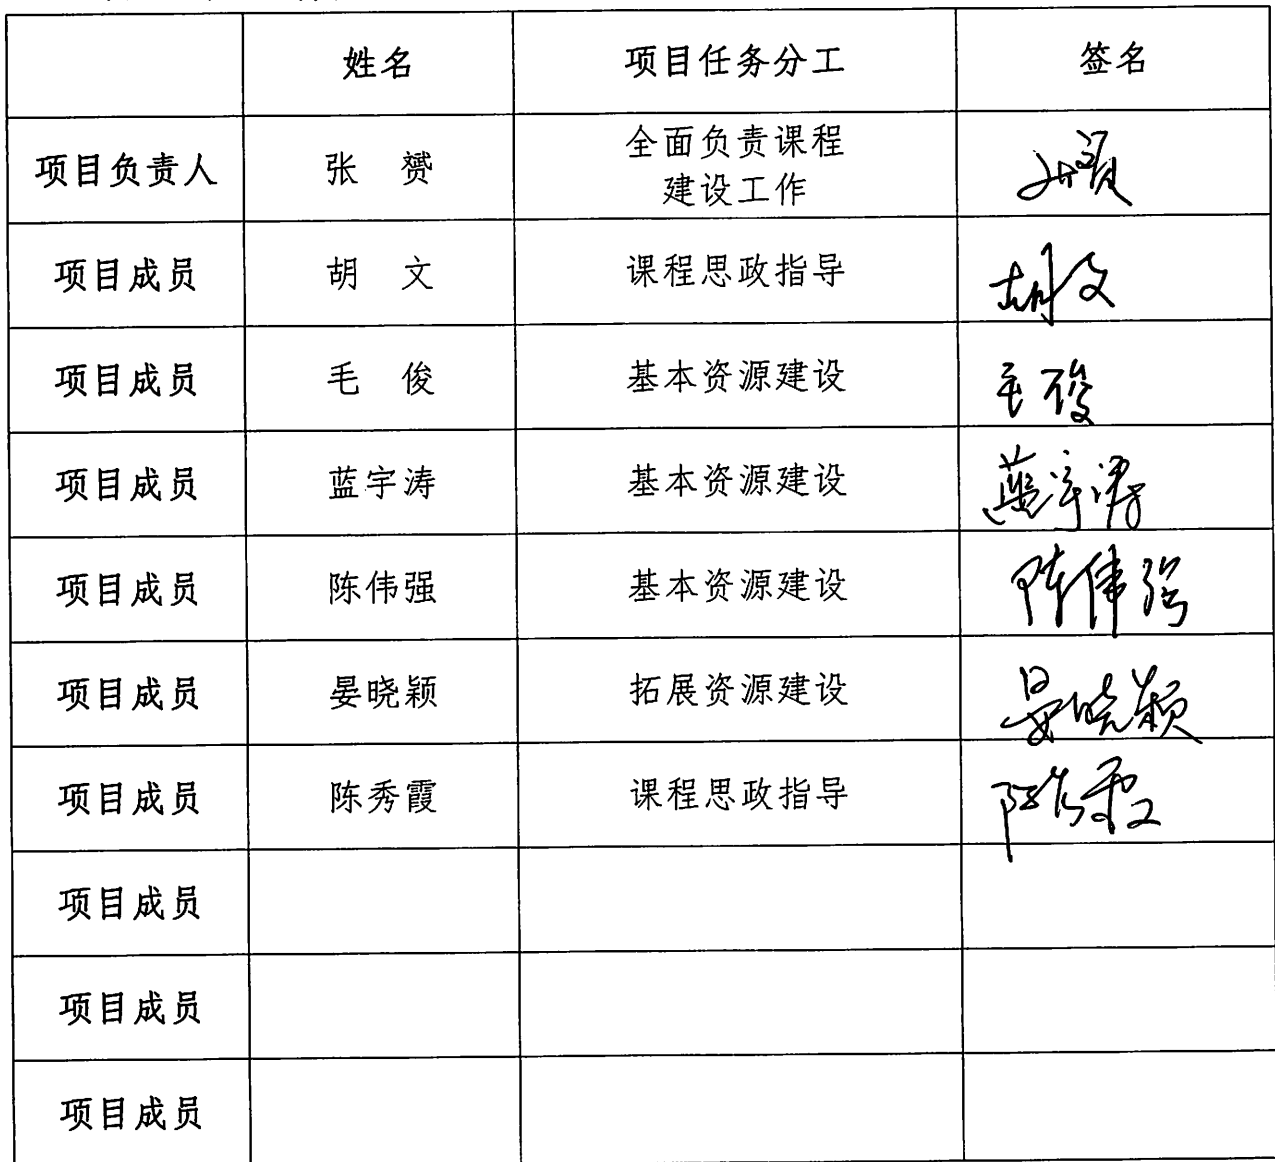 姓名 项目任务分工 签名
项目负责人 张 赟 全面负责课程
建设工作
项目成员 胡 文 课程思政指导 胡文
项目成员 毛 俊 基本资源建设 毛俊
项目成员 蓝宇涛 基本资源建设 蓝宇涛
项目成员 陈伟强 基本资源建设 陈伟强
项目成员 晏晓颖 拓展资源建设 晏晓颖
项目成员 陈秀霞 课程思政指导 陈秀霞
项目成员
项目成员
项目成员